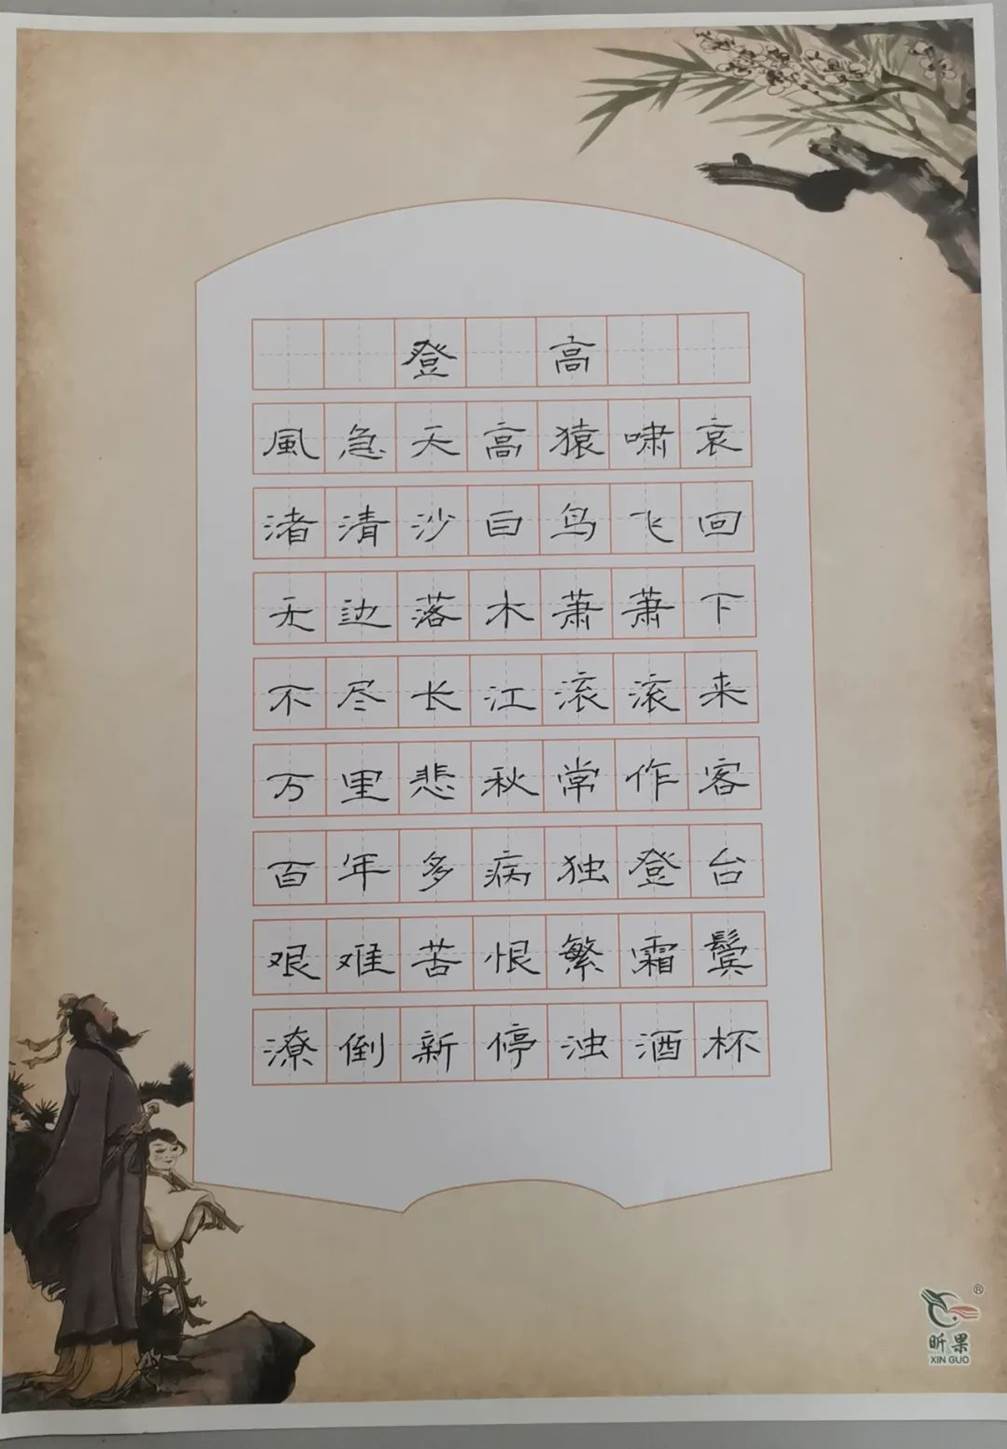 登高
風急天高猿啸哀
渚清沙白鸟飞回
无边落木萧萧下
不尽长江滚滚来
万里悲秋常作客
百年多病独登台
艰难苦恨繁霜鬓
潦倒新停浊酒杯
®
昕果
XIN GUO